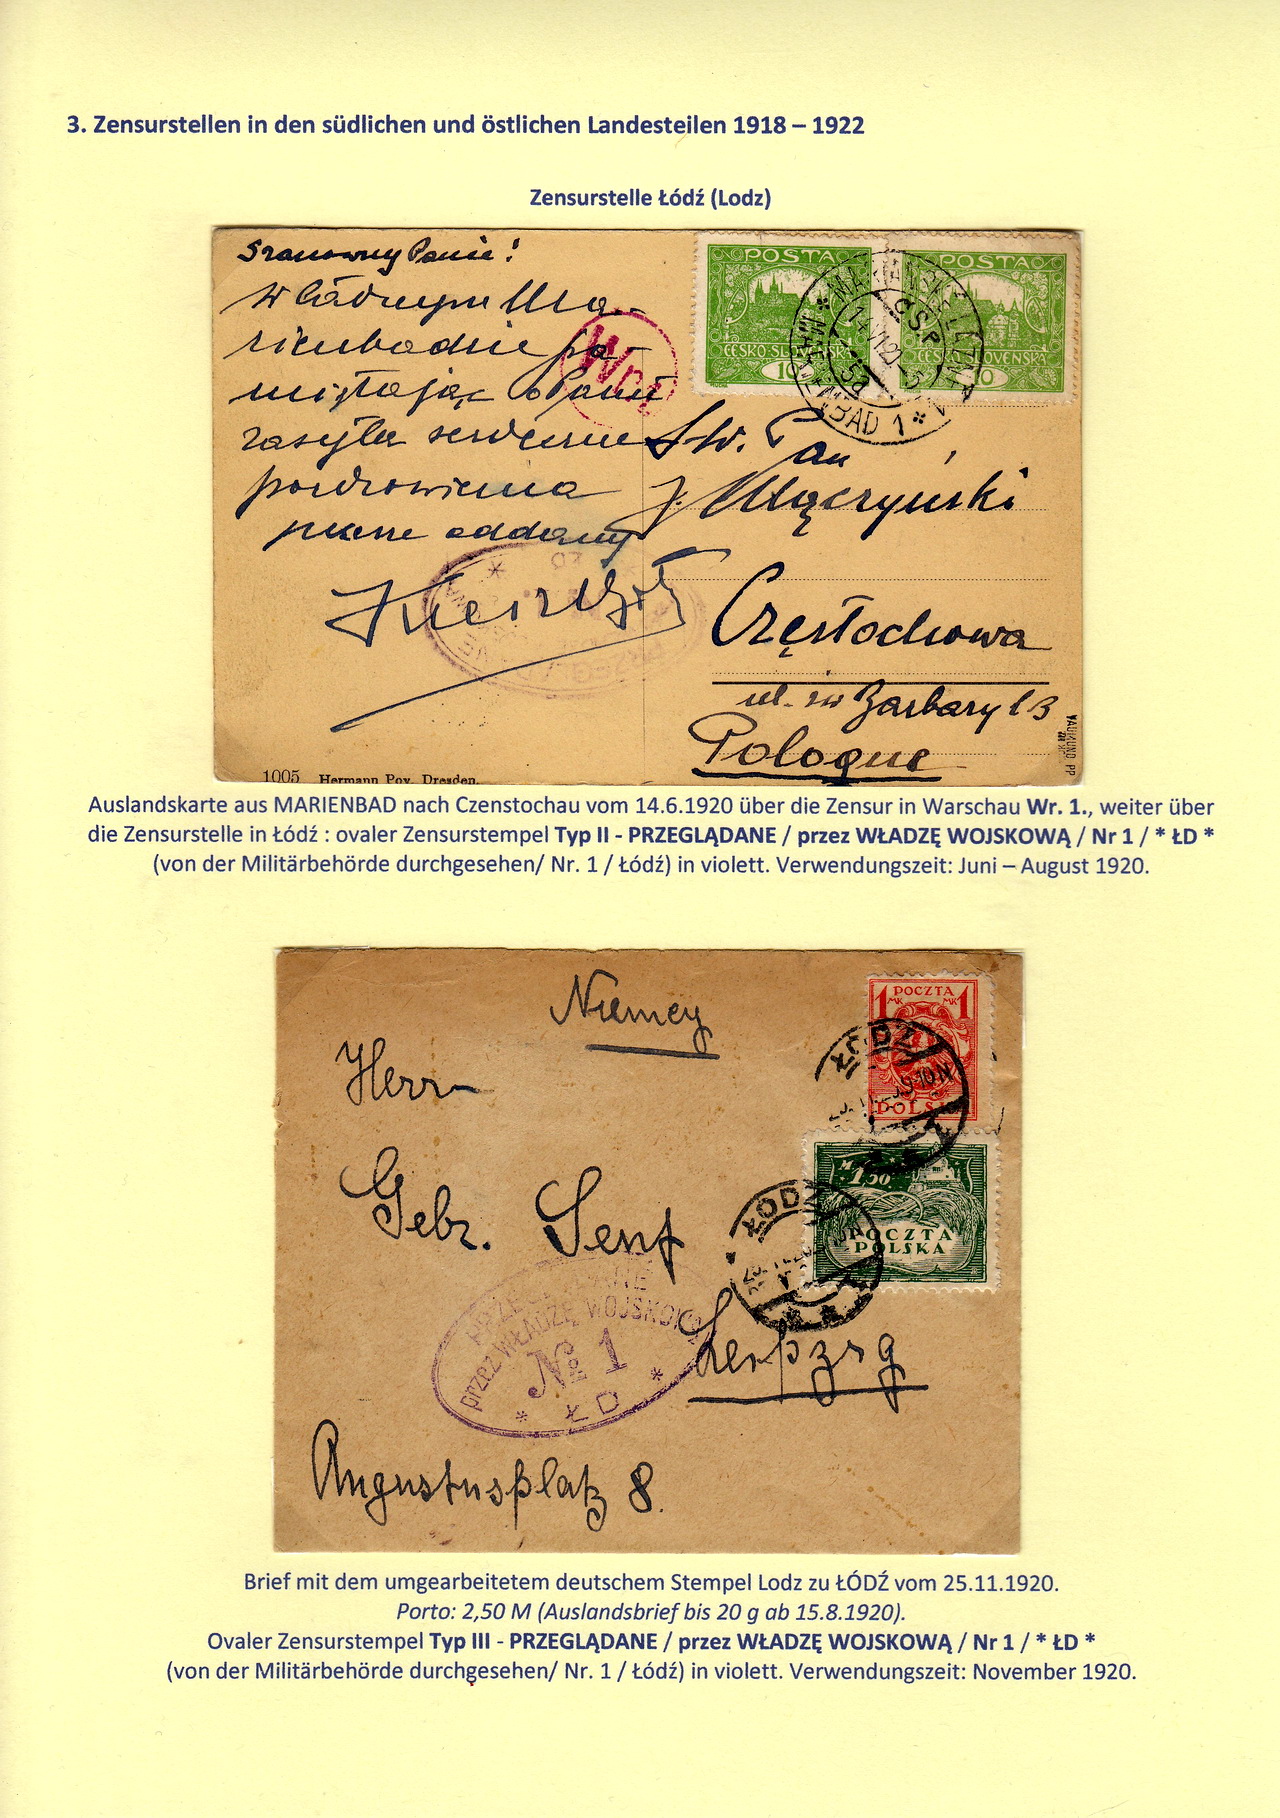 3. Zensurstellen in den südlichen und östlichen Landesteilen 1918 – 1922
Zensurstelle Łódź (Lodz)
Szanowny Panie!
W cudnym Ma-
rienbadzie pa-
miętając o Panu
zasyła serdeczne
pozdrowienia
oddany
POSTA
ČESKO-SLOVENSKÁ
10
POSTA
MARIENBAD 1
ČSR
Sw. Pan
J. Mączyński
Częstochowa
ul. św Barbary 13
Pologne
1005 Hermann Poy, Dresden.
Auslandskarte aus MARIENBAD nach Czenstochau vom 14.6.1920 über die Zensur in Warschau Wr. 1., weiter über
die Zensurstelle in Łódź : ovaler Zensurstempel Typ II - PRZEGLĄDANE / przez WŁADZĘ WOJSKOWĄ / Nr 1 / * ŁD *
(von der Militärbehörde durchgesehen/ Nr. 1 / Łódź) in violett. Verwendungszeit: Juni – August 1920.
Niemcy
Herrn
Gebr. Senf
Leipzig
Augustusplatz 8.
1 POCZTA 1
MK MK
POLSKA
ŁÓDŹ
1 50
POCZTA
POLSKA
ŁÓDŹ
przez WŁADZĘ WOJSKOWĄ
№ 1
* ŁD *
Brief mit dem umgearbeitetem deutschem Stempel Lodz zu ŁÓDŹ vom 25.11.1920.
Porto: 2,50 M (Auslandsbrief bis 20 g ab 15.8.1920).
Ovaler Zensurstempel Typ III - PRZEGLĄDANE / przez WŁADZĘ WOJSKOWĄ / Nr 1 / * ŁD *
(von der Militärbehörde durchgesehen/ Nr. 1 / Łódź) in violett. Verwendungszeit: November 1920.